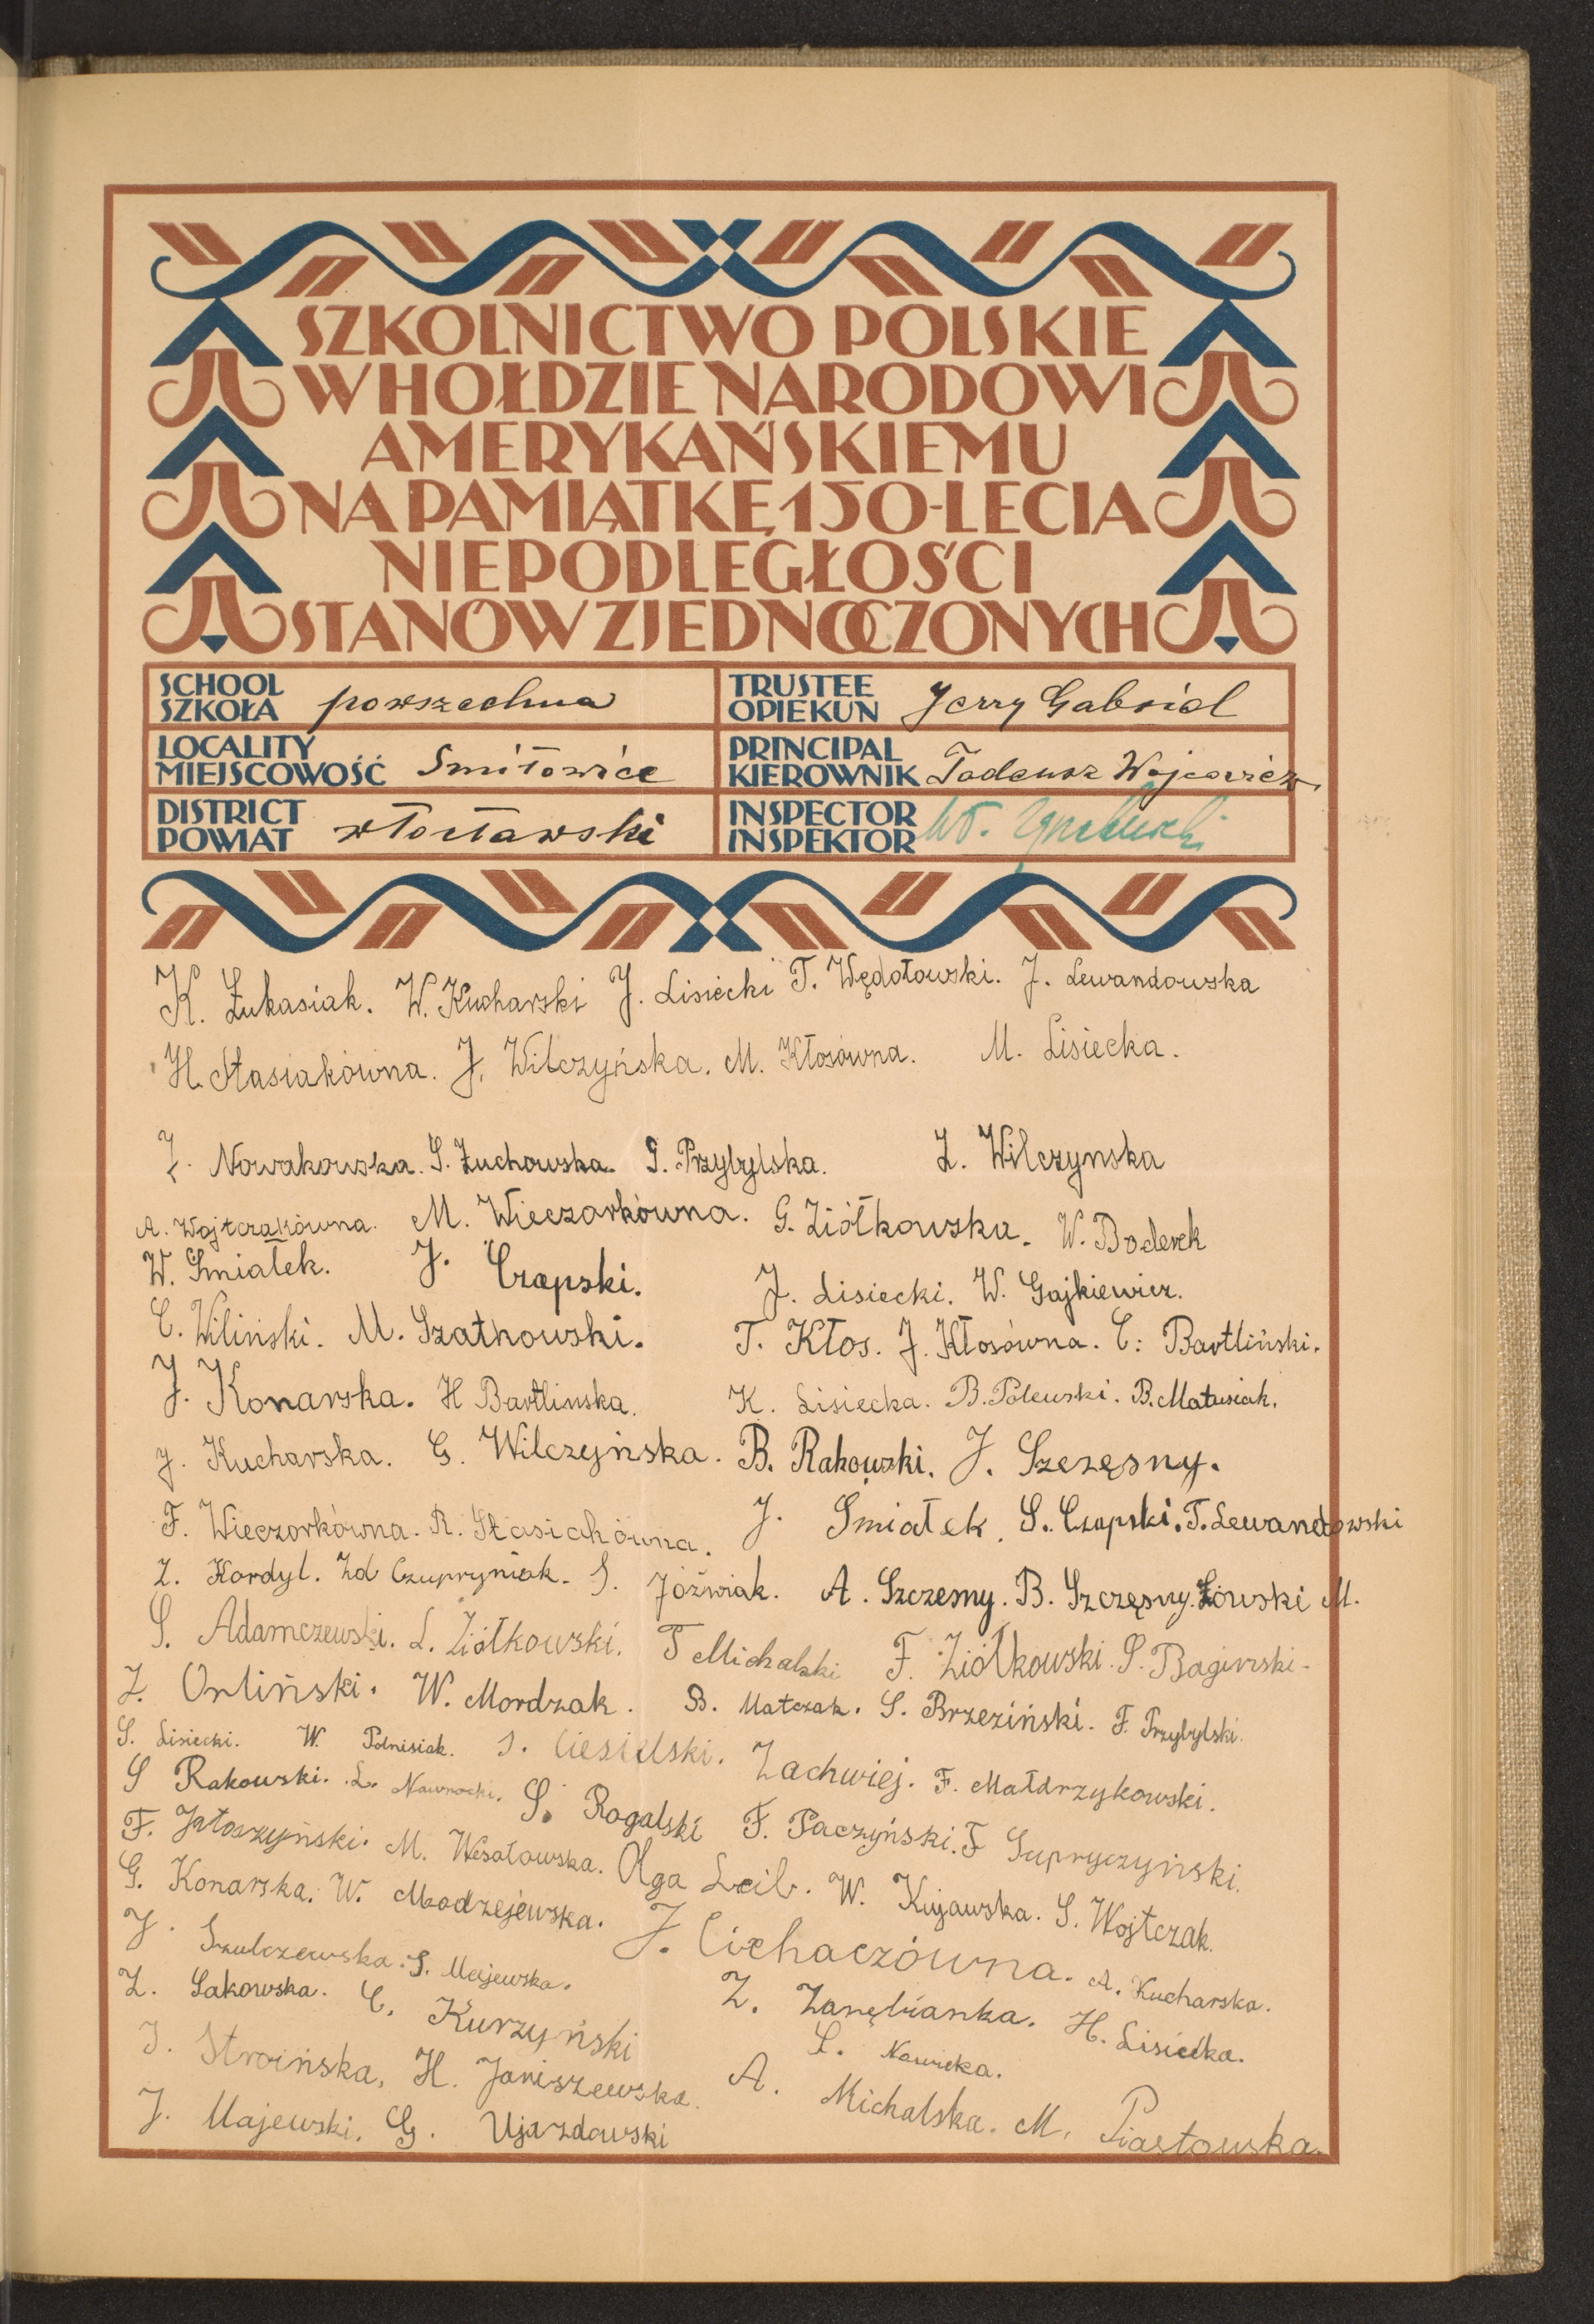 SZKOLNICTWO POLSKIE
W HOŁDZIE NARODOWI
AMERYKAŃSKIEMU
NA PAMIĄTKĘ 150-LECIA
NIEPODLEGŁOŚCI
STANÓW ZJEDNOCZONYCH
SCHOOL
SZKOŁA powszechna
TRUSTEE
OPIEKUN Jerzy Gabriel
LOCALITY
MIEJSCOWOŚĆ Smiłowice
PRINCIPAL
KIEROWNIK Tadeusz Wojcowicz
DISTRICT
POWIAT włocławski
INSPECTOR
INSPEKTOR Wł.
K. Łukasiak. W. Kucharski J. Lisiecki T. Wędołowski. J. Lewandowska
H. Stasiakówna. J. Wilczyńska. M. Kłosówna. M. Lisiecka.
Z. Nowakowska. S. Żuchowska. S. Przybylska. Z. Wilczynska
A. Wojtczakówna. M. Wieczorkówna. G. Ziółkowska. W. Boderek
W. Smiałek. J. Czapski. J. Lisiecki. W. Gajkiewicz.
C. Wiliński. M. Szatkowski. T. Kłos. J. Kłosówna. C: Bartliński.
J. Konarska. H Bartlinska. K. Lisiecka. B. Polewski. B. Matusiak.
J. Kucharska. G. Wilczyńska. B. Rakowski. J. Szczęsny.
F. Wieczorkówna. R. Stasiakówna. J. Smiałek. S. Czapski. T. Lewandowski
Z. Kordyl. Zd Czupryniak. S. Jóźwiak. A. Szczesny. B. Szczęsny. Łowski M.
S. Adamczewski. L. Ziółkowski. T Michalski F. Ziółkowski. S. Baginski-
Z. Orliński. W. Mordzak. B. Matczak. S. Brzeziński. F. Przybylski.
S. Lisiecki. W. Polnisiak. J. Ciesielski. Zachwiej. F. Małdrzykowski.
S Rakowski. L. Nawrocki. S. Rogalski F. Paczyński. F Supryczyński.
F. Jałoszyński. M. Wesołowska. Olga Leib. W. Kujawska. S. Wojtczak.
G. Konarska. W. Modzejewska. J. Cichaczówna. A. Kucharska.
J. Szulczewska. S. Majewska. Z. Zarębianka. H. Lisiecka.
Z. Sakowska. C. Kurzyński S. Nawicka.
J. Stroińska, H. Janiszewska. A. Michalska. M. Piastowska.
J. Majewski. G. Ujazdowski